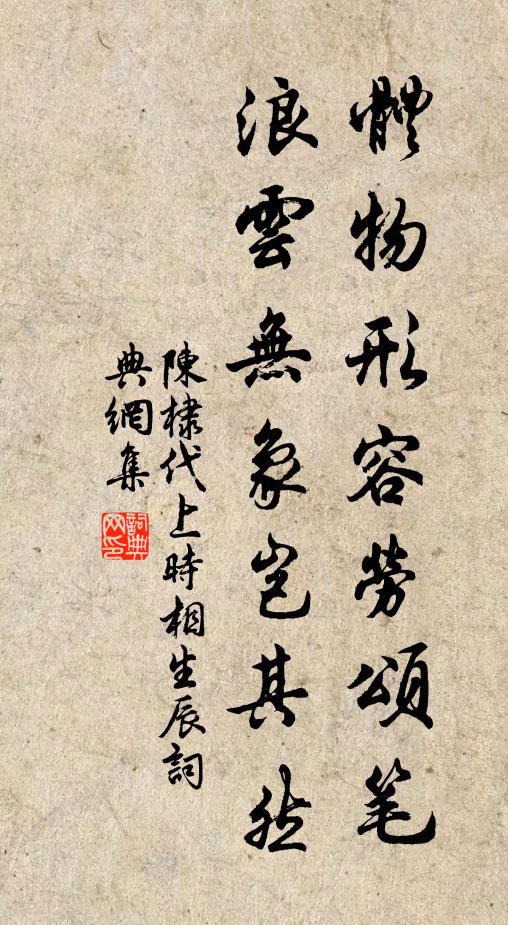 體物形容勞頌笔
浪雲無象豈其然
陳棣代上時相生辰詞
典網集
詞典网印